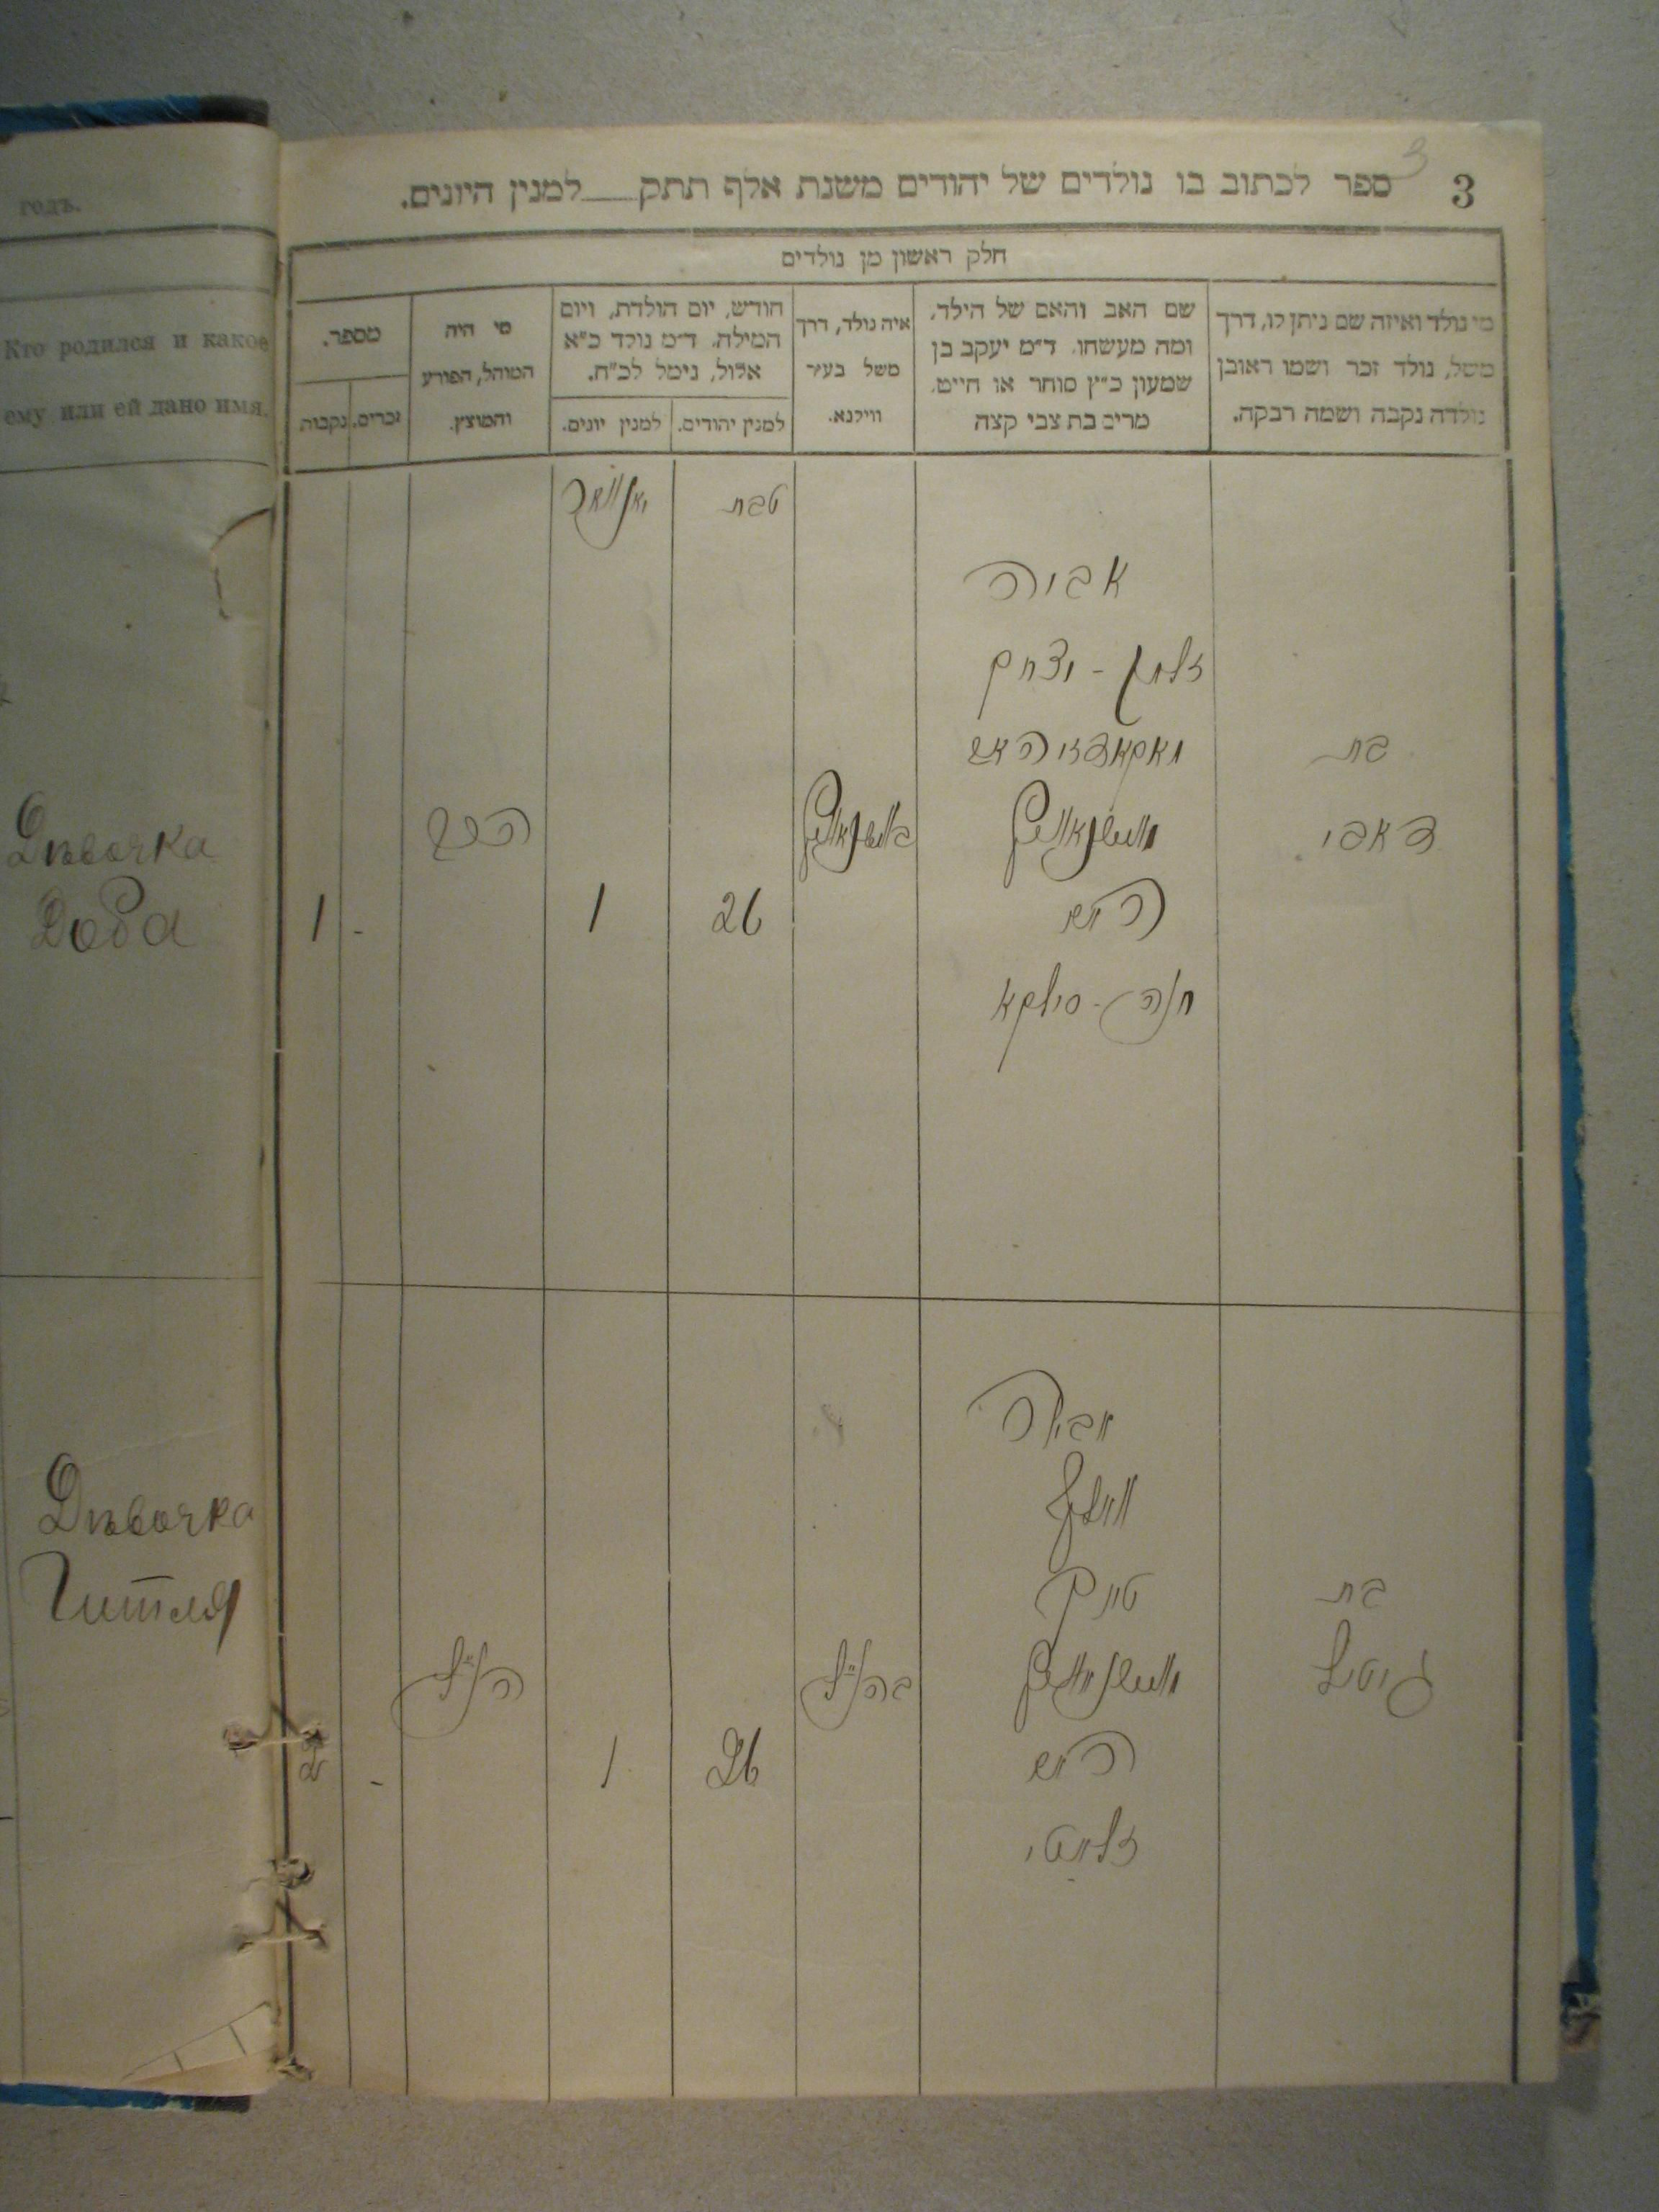 годъ.
Кто родился и какое
ему или ей дано имя.
Дѣвочка
Доба
Дѣвочка
Гитля
3
3 ספר לכתוב בו נולדים של יהודים משנת אלף תתק למנין היונים.
חלק ראשון מן נולדים
מי נולד ואיזה שם ניתן לו, דרך
משל, נולד זכר ושמו ראובן
נולדה נקבה ושמה רבקה.
שם האב והאם של הילד,
ומה מעשהו. ד״מ יעקב בן
שמעון כ״ץ סוחר או חייט.
מרים בת צבי קצה
איה נולד, דרך
משל בעיר
ווילנא.
חודש, יום הולדת, ויום
המילה. ד״מ נולד כ״א
אלול, נימל לכ״ח.
למנין יהודים.
למנין יונים.
מי היה
המוהל, הפורע
והמוצץ.
מספר.
זכרים.
נקבות
טבת
יאנואר
בת
דאבי
אביה
זלמן - יצחק
האם
חנה - מילקא
26
1
-
1
בת
גיטל
אביה
האם
זלאטי
בהנ״ל
26
1
הנ״ל
-
2